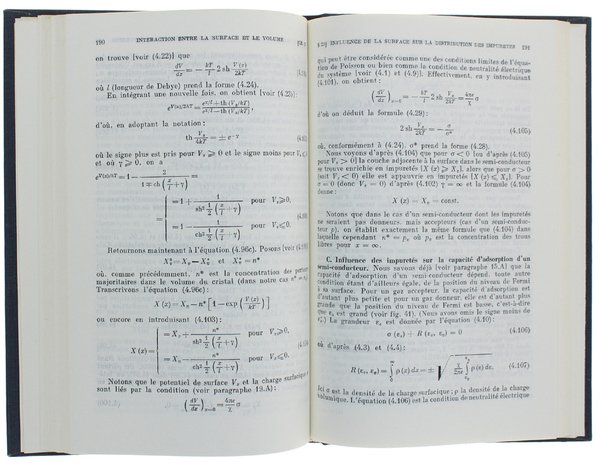 190 INTERACTION ENTRE LA SURFACE ET LE VOLUME
on trouve [voir (4.22)] que
dV/dx = − kT/l 2 sh V(x)/2kT
où l (longueur de Debye) prend la forme (4.24).
En intégrant une nouvelle fois, on obtient [voir (4.23)]:
d'où, en adoptant la notation:
th = ± e^−γ
où le signe plus est pris pour Vs ⩾ 0 et le signe moins pour Vs ⩽
et où γ ⩾ 0, on a
e^V(x)/kT = 1 − 2 / 1 ∓ ch (x/l + γ) =
= 1 + 1 / sh² 1/2 (x/l + γ) pour Vs ⩾ 0,
= 1 − 1 / ch² 1/2 (x/l + γ) pour Vs ⩽ 0.
Retournons maintenant à l'équation (4.96c). Posons [voir
où, comme précédemment, n* est la concentration des
majoritaires dans le volume du cristal (dans notre cas
Transcrivons l'équation (4.96c):
X (x) = Xv − n* [1 − exp (V(x)/kT)]
ou encore en introduisant (4.103):
X (x) =
= Xv + n* / sh² 1/2 (x/l + γ) pour Vs ⩾ 0,
= Xv − n* / ch² 1/2 (x/l + γ) pour Vs ⩽ 0.
Notons que le potentiel de surface Vs et la charge surfacique
sont liés par la condition (voir paragraphe 19.A):
(dV/dx)x=0 = 4πe/χ
INFLUENCE DE LA SURFACE SUR LA DISTRIBUTION DES IMPURETÉS 191
qui peut être considérée comme une des conditions limites de l'équation
de Poisson ou bien comme la condition de neutralité électrique
du système [voir (4.1) et (4.9)]. Effectivement, en y introduisant
(4.101), on obtient:
(dV/dx)x=0 = − kT/l 2 sh Vs/2kT = 4πe/χ σ
d'où on déduit la formule (4.29):
2 sh Vs/2kT = − σ/σ* (4.105)
où, conformément à (4.24), σ* prend la forme (4.28).
Nous voyons d'après (4.104) que pour σ < 0 (ou d'après (4.105)
pour Vs > 0) la couche adjacente à la surface dans le semi-conducteur
se trouve enrichie en impuretés [X (x) ⩾ Xv], alors que pour σ > 0
(soit Vs < 0) elle est appauvrie en impuretés [X (x) ⩽ Xv]. Pour
σ = 0 (donc Vs = 0) d'après (4.102) γ = ∞ et la formule (4.104)
donne:
X (x) = Xv = const.
Notons que dans le cas d'un semi-conducteur dont les impuretés
ne seraient pas donneurs, mais accepteurs (cas d'un semi-conducteur
p), on établit exactement la même formule que (4.104) dans
laquelle cependant n* = pv où pv est la concentration des trous
libres pour x = ∞.
C. Influence des impuretés sur la capacité d'adsorption d'un
semi-conducteur. Nous savons déjà (voir paragraphe 15.A) que la
capacité d'adsorption d'un semi-conducteur dépend, toute autre
condition étant d'ailleurs égale, de la position du niveau de Fermi
à sa surface. Pour un gaz accepteur, la capacité d'adsorption est
d'autant plus petite et pour un gaz donneur, elle est d'autant plus
grande que la position du niveau de Fermi est basse, c'est-à-dire
que εs est grand (voir fig. 41). (Nous avons omis le signe moins de
La grandeur εs est donnée par l'équation (4.10):
σ (εs) + R (εs, εv) = 0 (4.106)
où d'après (4.3) et (4.4):
(4.107)
Ici σ est la densité de la charge surfacique; ρ la densité de la charge
volumique. L'équation (4.106) est la condition de neutralité électrique